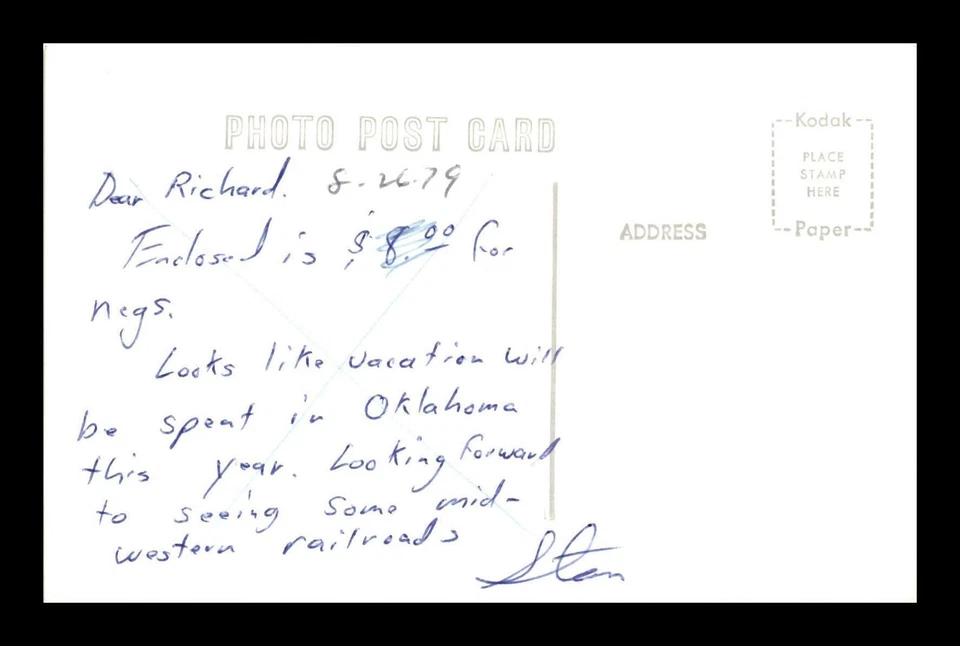 PHOTO POST CARD
Kodak
PLACE
STAMP
HERE
Paper
ADDRESS
Dear Richard. 8-26-79
Enclosed is $8.00 for
negs.
Looks like vacation will
be spent in Oklahoma
this year. Looking forward
to seeing some mid-
western railroads
Stan